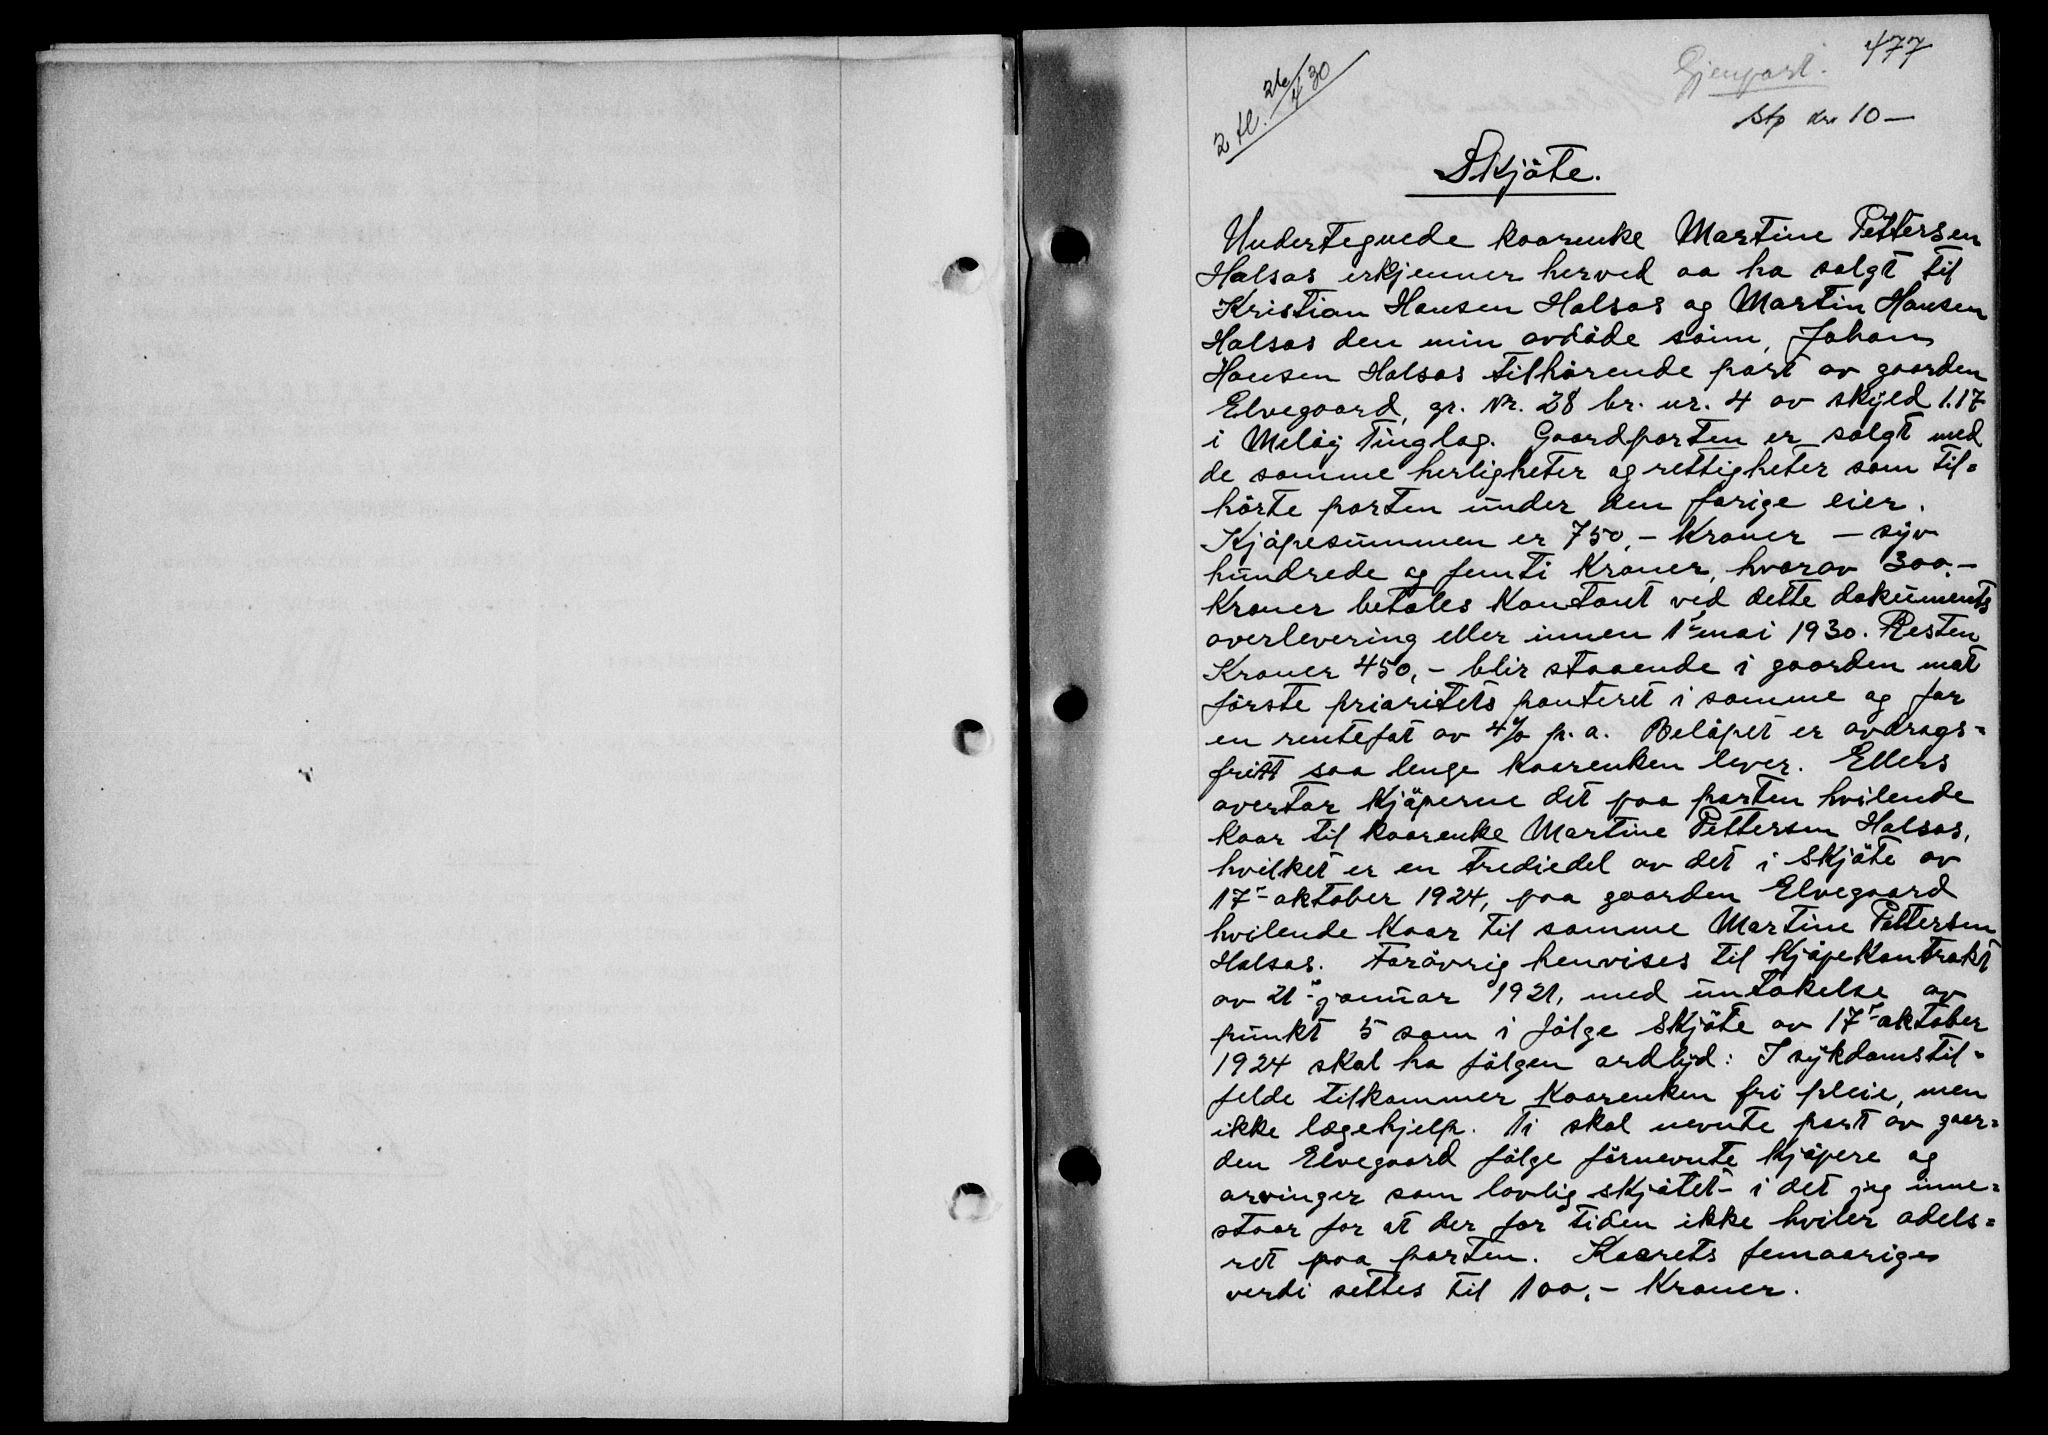 477
Gjenpart.
2 tl. 26/4 30
Stp kr 10 —
Skjöte.
Undertegnede kaarenke Martine Pettersen
Halsos erkjenner herved aa ha solgt til
Kristian Hansen Halsos og Martin Hansen
Halsos den min avdöde sönn, Johan
Hansen Halsos tilhörende part av gaarden
Elvegaard, gr. Nr. 28 br. nr. 4 av skyld 1.17
i Melöy Tinglag. Gaardparten er solgt med
de samme herligheter og rettigheter som til=
hörte parten under den forige eier.
Kjöpesummen er 750,- Kroner — syv
hundrede og femti Kroner, hvorav 300,-
Kroner betales Kontant ved dette dokuments
overlevering eller innen 1ste mai 1930. Resten
Kroner 450,- blir staaende i gaarden mot
förste prioritets panteret i samme og for
en rentefot av 4% p.a. Belöpet er avdrags=
fritt saa lenge kaarenken lever. Ellers
overtar Kjöperne det paa parten hvilende
kaar til kaarenke Martine Pettersen Halsos,
hvilket er en trediedel av det i Skjöte av
17- oktober 1924, paa gaarden Elvegaard
hvilende Kaar til samme Martine Pettersen
Halsos. Forövrig henvises til Kjöpekontrakt
av 21- januar 1921, med untakelse av
punkt 5 som i fölge Skjöte av 17- oktober
1924 skal ha fölgen ordlyd: I sykdomstil=
felde tilkommer Kaarenken fri pleie, men
ikke lægehjelp. Ti skal nevnte part av gaar=
den Elvegaard fölge förnevnte kjöpere og
arvinger som lovlig skjötet- i det jeg inne=
staar for at der for tiden ikke hviler odels=
ret paa parten. Kaarets femaarige
verdi settes til 100,- Kroner.